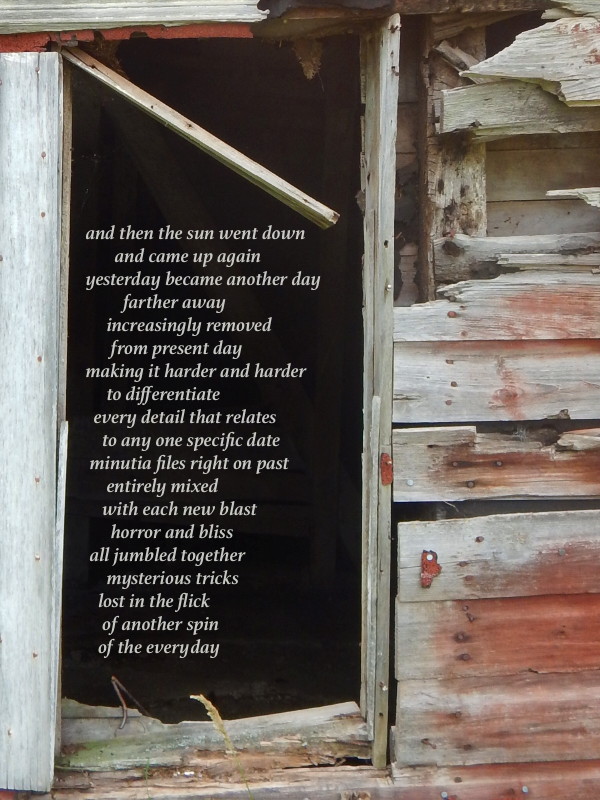 and then the sun went down
and came up again
yesterday became another day
farther away
increasingly removed
from present day
making it harder and harder
to differentiate
every detail that relates
to any one specific date
minutia files right on past
entirely mixed
with each new blast
horror and bliss
all jumbled together
mysterious tricks
lost in the flick
of another spin
of the everyday